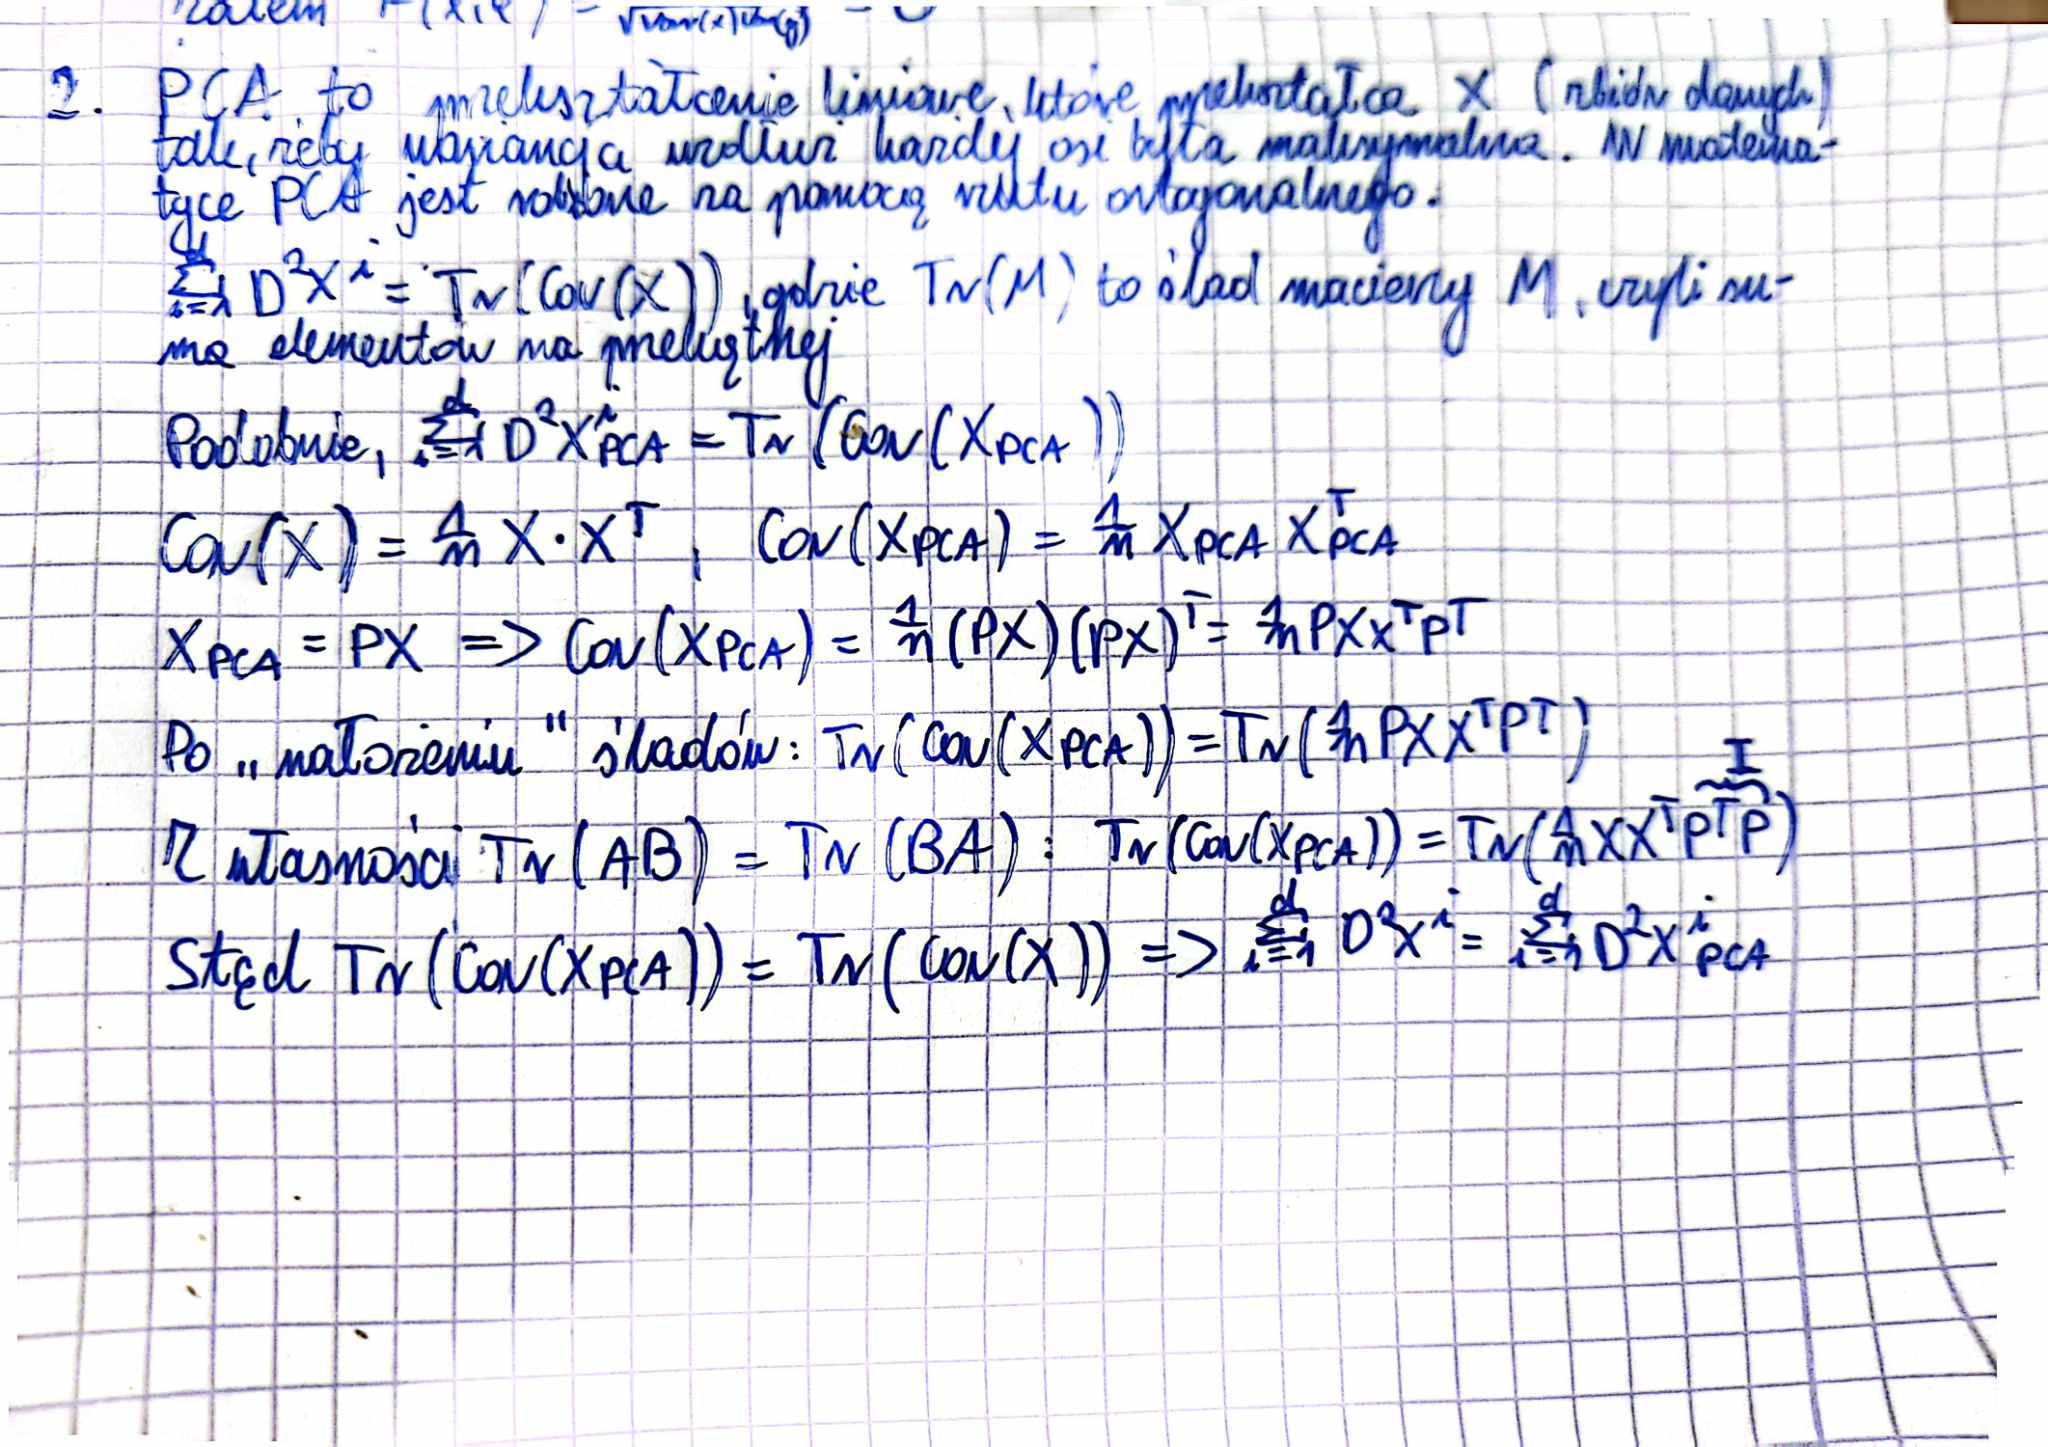 zatem r(x,y) = √Var(x)Var(y) = 0
2. PCA to przekształcenie liniowe, które przekształca X (zbiór danych)
tak, żeby wariancja wzdłuż każdej osi była maksymalna. W matema-
tyce PCA jest robione za pomocą rzutu ortogonalnego.
∑_{i=1}^{d} D²Xⁱ = Tr(Cov(X)), gdzie Tr(M) to ślad macierzy M, czyli su-
ma elementów na przekątnej
Podobnie, ∑_{i=1}^{d} D²Xⁱ_PCA = Tr(Cov(X_PCA))
Cov(X) = 1/n X·Xᵀ, Cov(X_PCA) = 1/n X_PCA Xᵀ_PCA
X_PCA = PX => Cov(X_PCA) = 1/n (PX)(PX)ᵀ = 1/n PXXᵀPᵀ
Po „nałożeniu" śladów: Tr(Cov(X_PCA)) = Tr(1/n PXXᵀPᵀ)
I
Z własności Tr(AB) = Tr(BA): Tr(Cov(X_PCA)) = Tr(1/n XXᵀPᵀP)
Stąd Tr(Cov(X_PCA)) = Tr(Cov(X)) => ∑_{i=1}^{d} D²Xⁱ = ∑_{i=1}^{d} D²Xⁱ_PCA